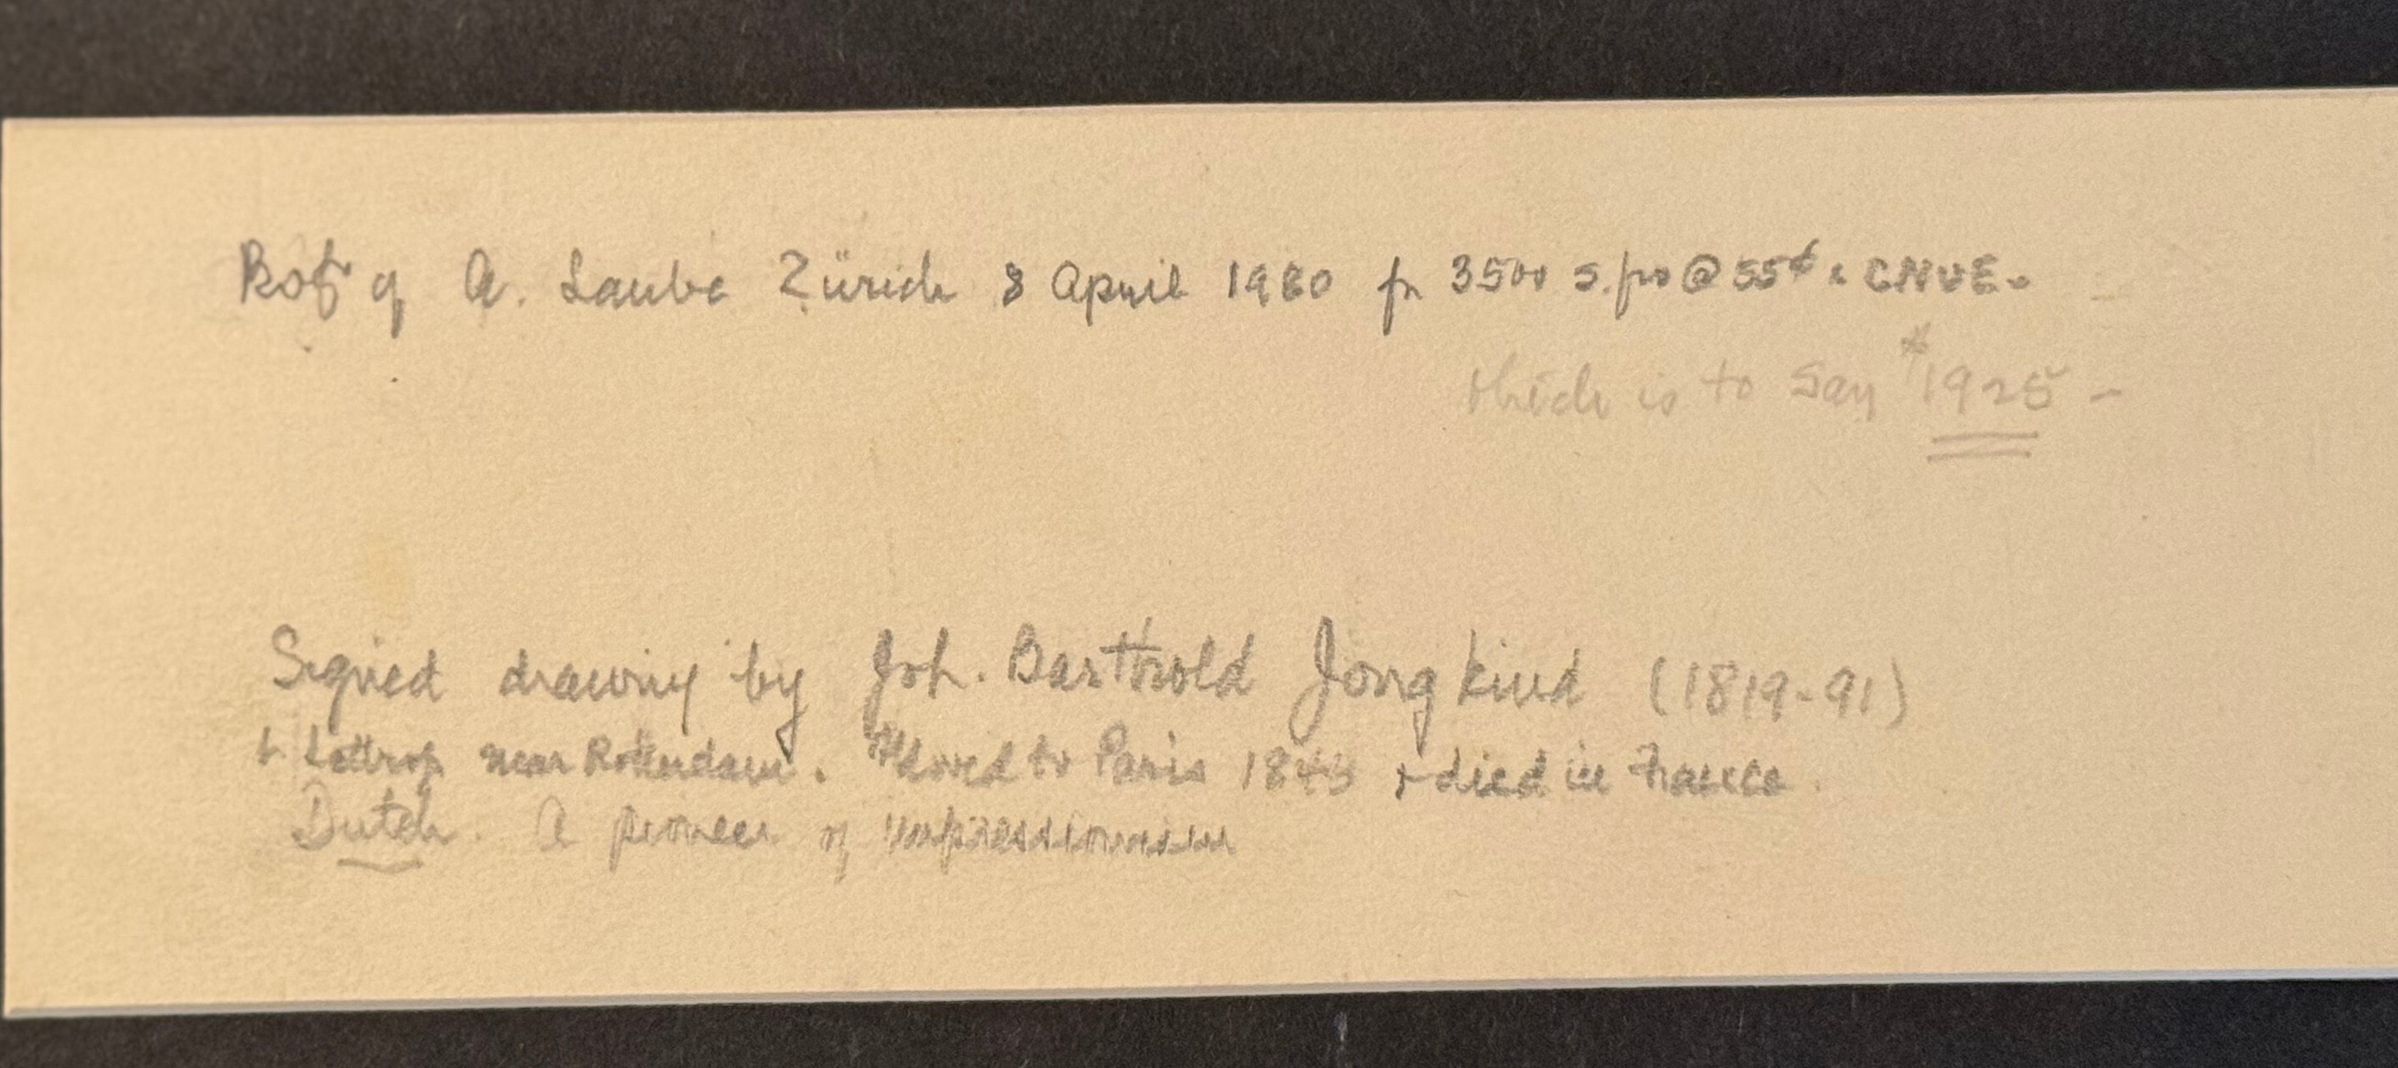 Bot of A. Laube Zürich 8 April 1980 fr 3500 s.frs @ 55¢
which is to say $1925 -
Signed drawing by Joh. Barthold Jongkind (1819-91)
b Lattrop near Rotterdam. Moved to Paris 1845 + died in France.
Dutch. A pioneer of impressionism